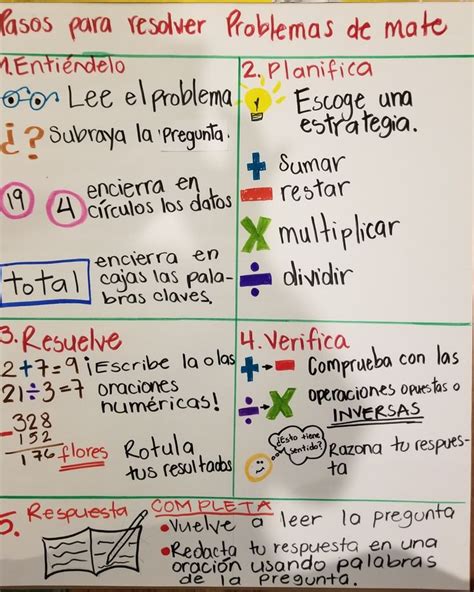 Pasos para resolver Problemas de mate
1.Entiéndelo
Lee el problema
¿? Subraya la Pregunta.
19 4 encierra en
círculos los datos
total encierra en
cajas las pala-
bras claves.
2. Planifica
Escoge una
estrategia.
+ Sumar
- restar
X multiplicar
÷ dividir
3. Resuelve
2+7=9 ¡Escribe la o las
21÷3=7 oraciones
numéricas!
328
- 152
176 flores Rotula
tus resultados
4. Verifica
+→- Comprueba con las
÷→X operaciones opuestas o
INVERSAS
¿Esto tiene
sentido?
Razona tu respues-
ta
5. Respuesta COMPLETA
•Vuelve a leer la pregunta
•Redacta tu respuesta en una
oración usando palabras
de la pregunta.